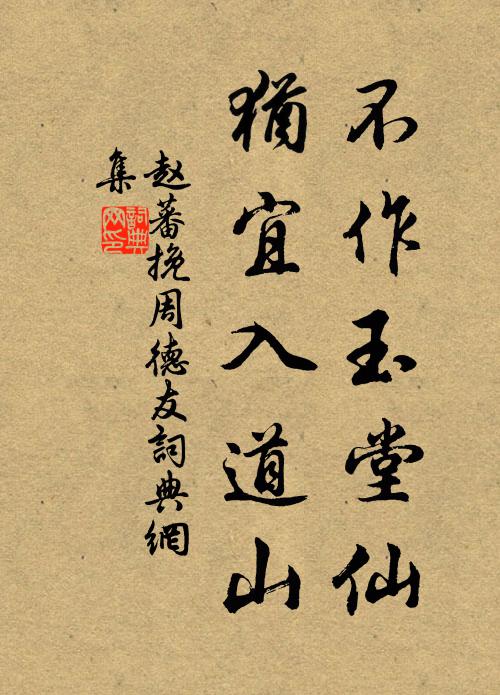 不作玉堂仙
猶宜入道山
赵蕃挽周德友詞典網
集
詞典
网印